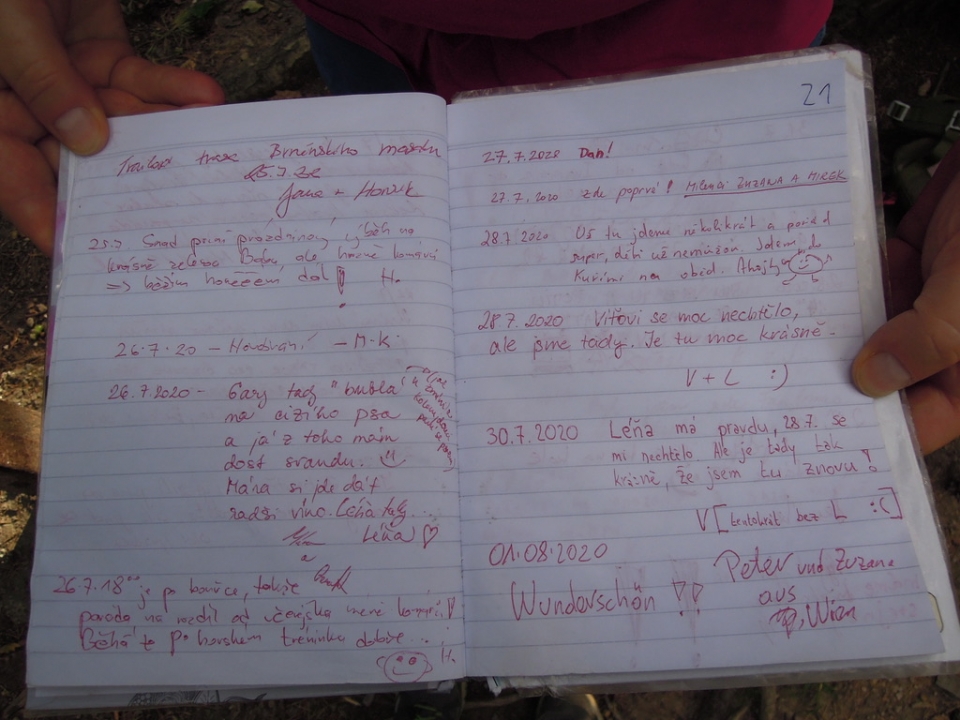 Trailová trasa Brněnského masivu
25.7.20
Jana + Honzík
25.7. Snad první prázdninový výběh na
krásně zelenou Babu, ale, hodně komárů
=> běžím honééém dál! H.
26.7.20 - - M.K.
26.7.2020 - Gary tady "bublá"
na cizího psa
a já z toho mám
dost srandu.
Mára si jde dát
radši víno. Léňa taky...
Léňa ♡
26.7. 18°° je po bouřce, takže
paráda na rozdíl od včerejška méně komárů!
Běhá se po horském tréninku dobře...
H.
21
27.7.2020 Dan!
27.7.2020 Zde poprvé! Milenci ZUZANA A MIREK
28.7.2020 Už tu jdeme několikrát a pořád
super, děti už nemůžou. Jdeme do
Kuřimi na oběd. Ahojky
28.7.2020 Víťovi se moc nechtělo,
ale jsme tady. Je tu moc krásně.
V + L :)
30.7.2020 Léňa má pravdu, 28.7. se
mi nechtělo. Ale je tady tak
krásně, že jsem tu znovu!
V [tentokrát bez L :(]
01.08.2020
Wunderschön !!
Peter und Zuzana
aus
Wien